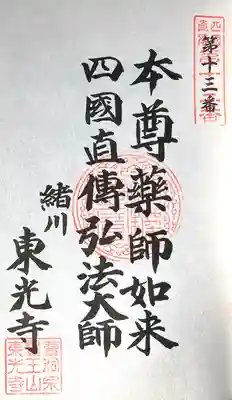 第十三番
本尊藥師如来
四國直傳弘法大師
緒川
東光寺
曹洞宗
東光寺